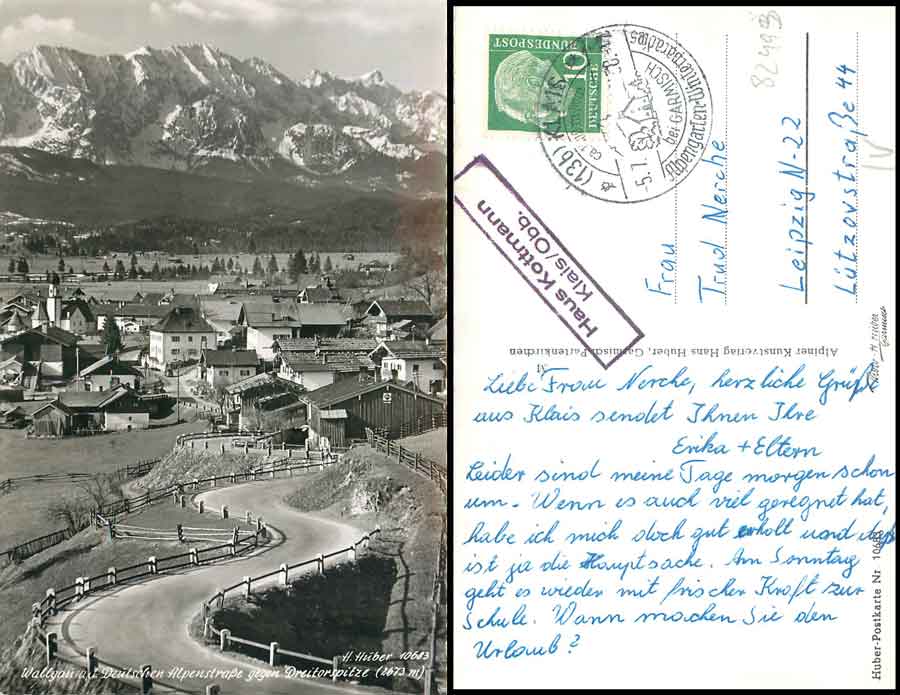 H. Huber 10683
Wallgau a. d. Deutschen Alpenstraße gegen Dreitorspitze (2673 m)
10
DEUTSCHE
BUNDESPOST
(13b) KLAIS
-5.7.
bei GARMISCH
Alpengarten-Winterparadies
82493
Haus Kottmann
Klais/Obb.
Frau
Trud Nerche
Leipzig N-22
Lützovstraße 44
IV
Alpiner Kunstverlag Hans Huber, Garmisch-Partenkirchen
M
Huber-Postkarte Nr 10683
Liebe Frau Nerche, herzliche Grüße
aus Klais sendet Ihnen Ihre
Erika + Eltern
Leider sind meine Tage morgen schon
um. Wenn es auch viel geregnet hat,
habe ich mich doch gut erholt und das
ist ja die Hauptsache. Am Sonntag
geht es wieder mit frischer Kraft zur
Schule. Wann machen Sie den
Urlaub?